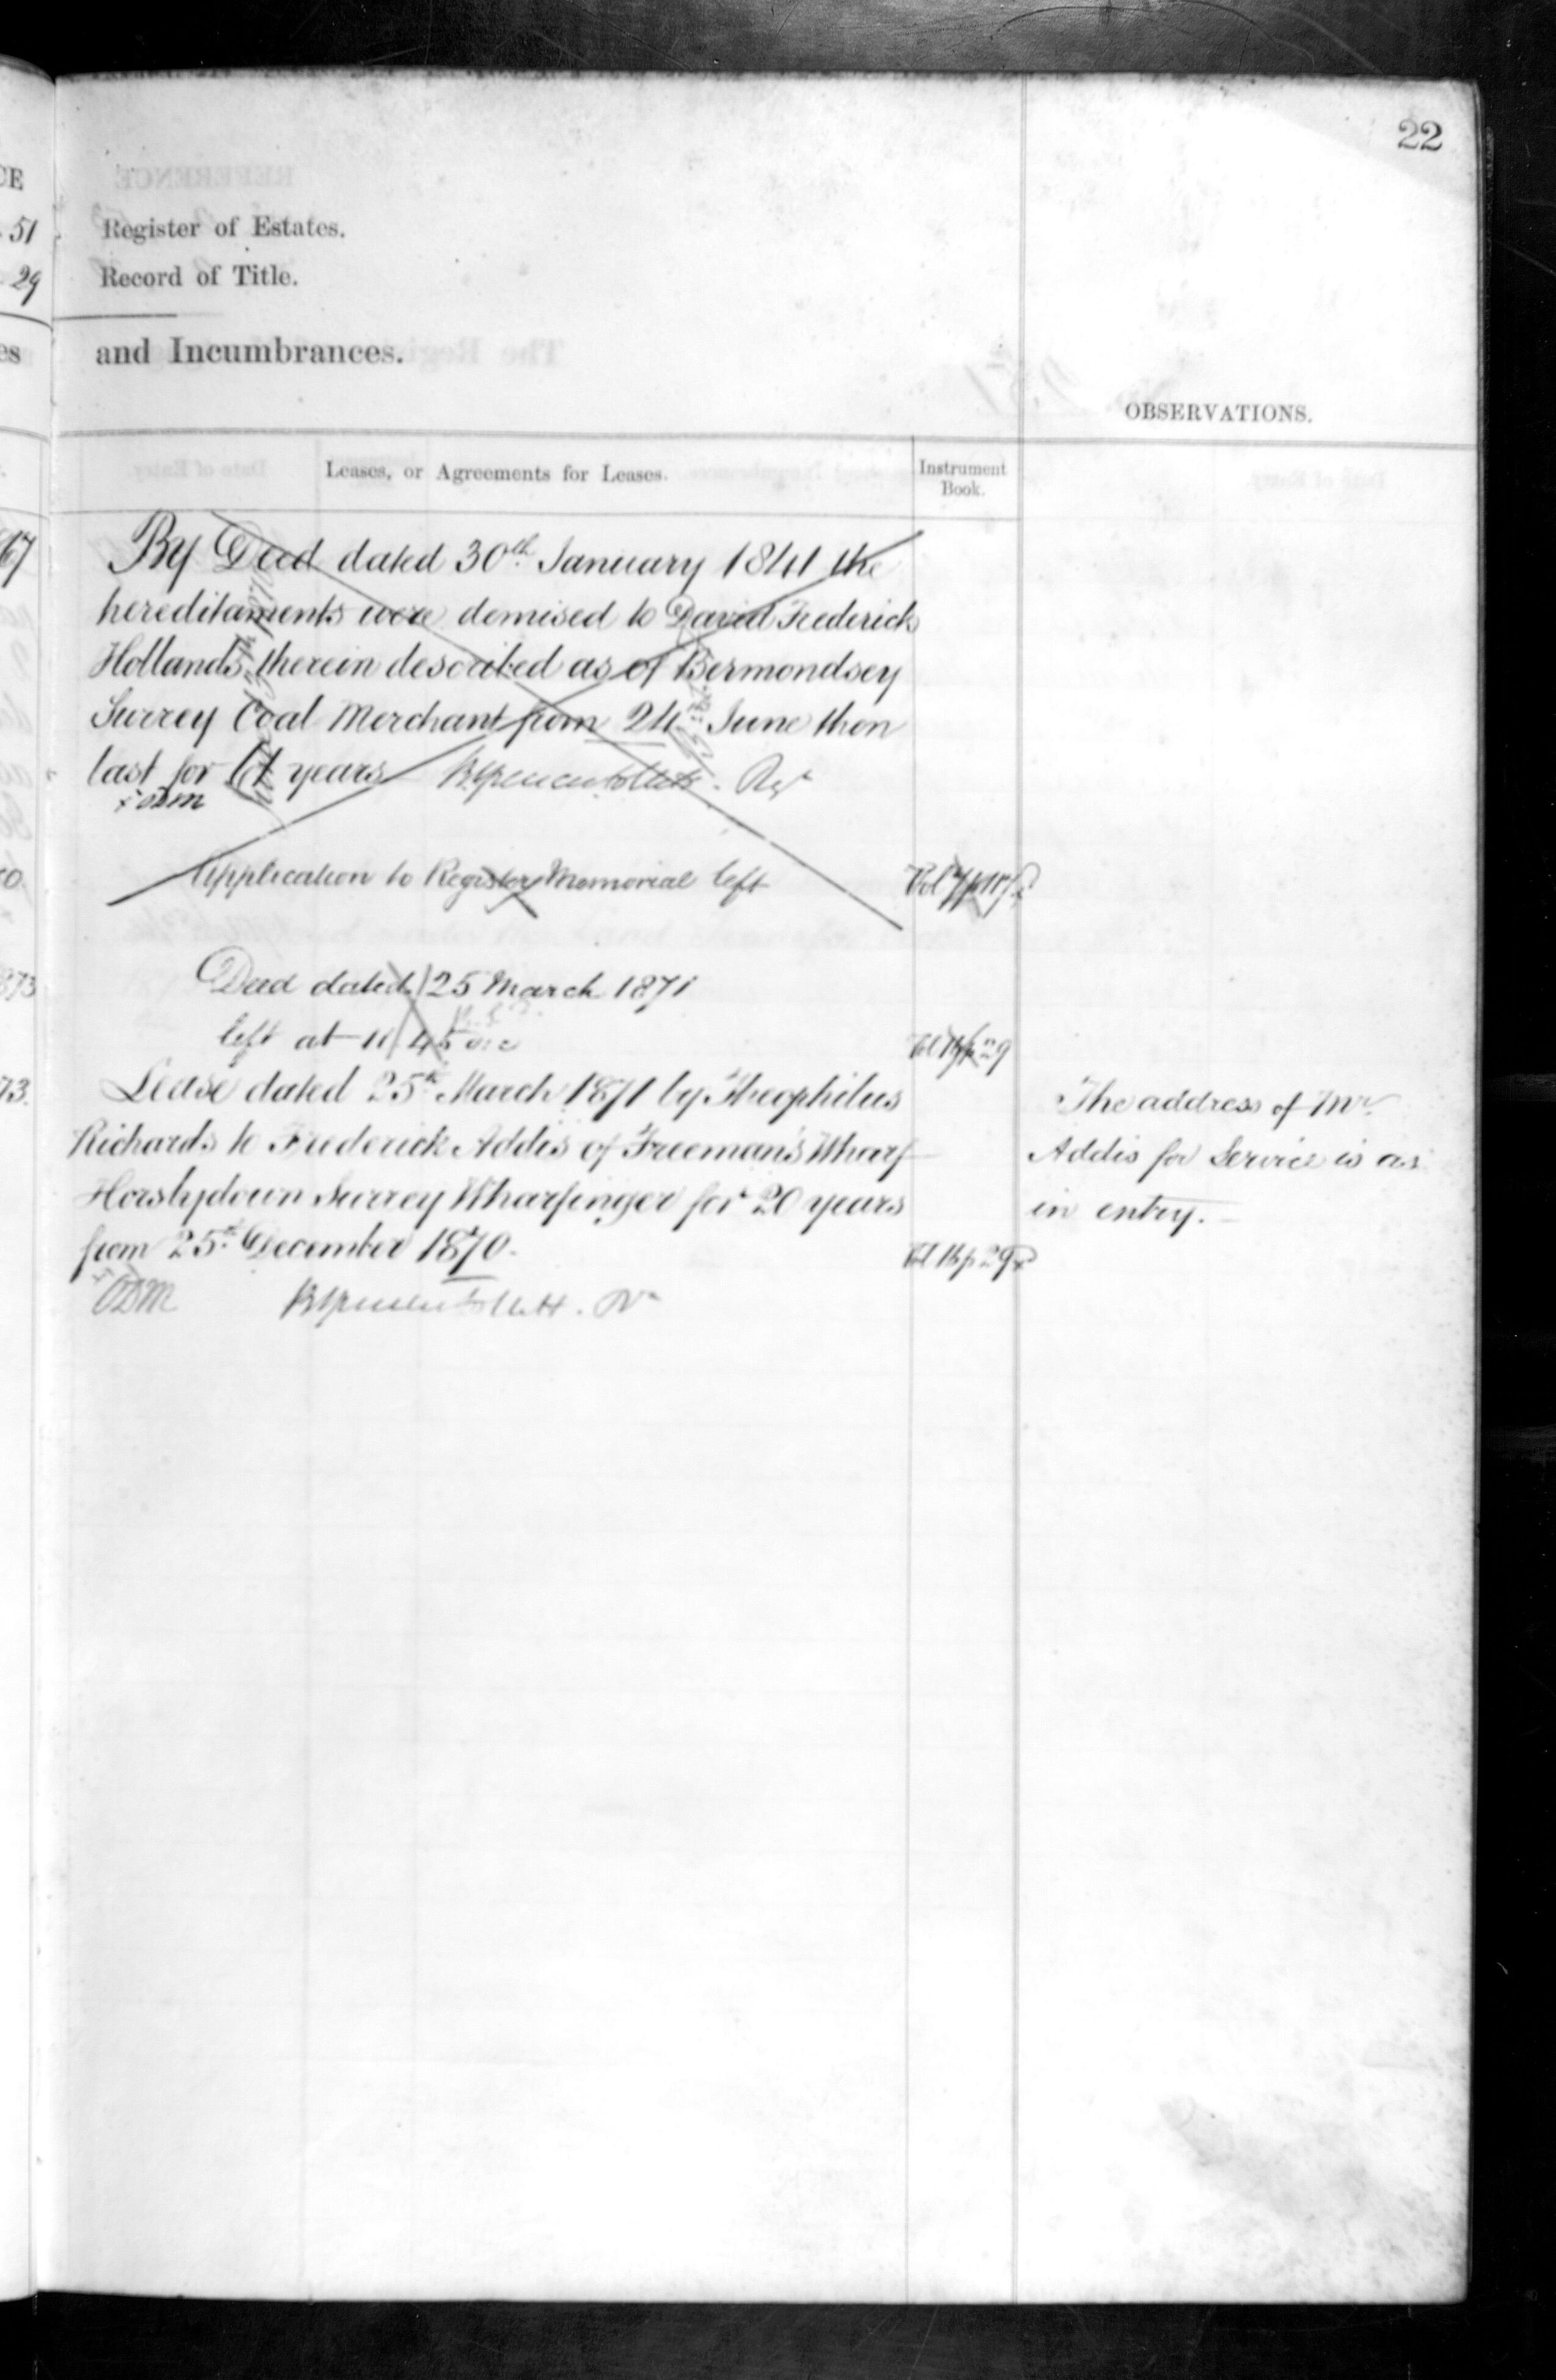 22
Register of Estates.
Record of Title.
and Incumbrances.
OBSERVATIONS.
Leases, or Agreements for Leases.
Instrument
Book.
By Deed dated 30th January 1841 the
hereditaments were demised to David Frederick
Hollands therein described as of Bermondsey
Surrey Coal Merchant from 24th June then
last for 61 years
ODM
Application to Register Memorial left
Deed dated 25 March 1871
left at 11 45
Lease dated 25th March 1871 by Theophilus
Richards to Frederick Addis of Freeman's Wharf
Horslydown Surrey Wharfinger for 20 years
from 25th December 1870.
Vol 16 p 29
ODM
The address of Mr
Addis for Service is as
in entry.